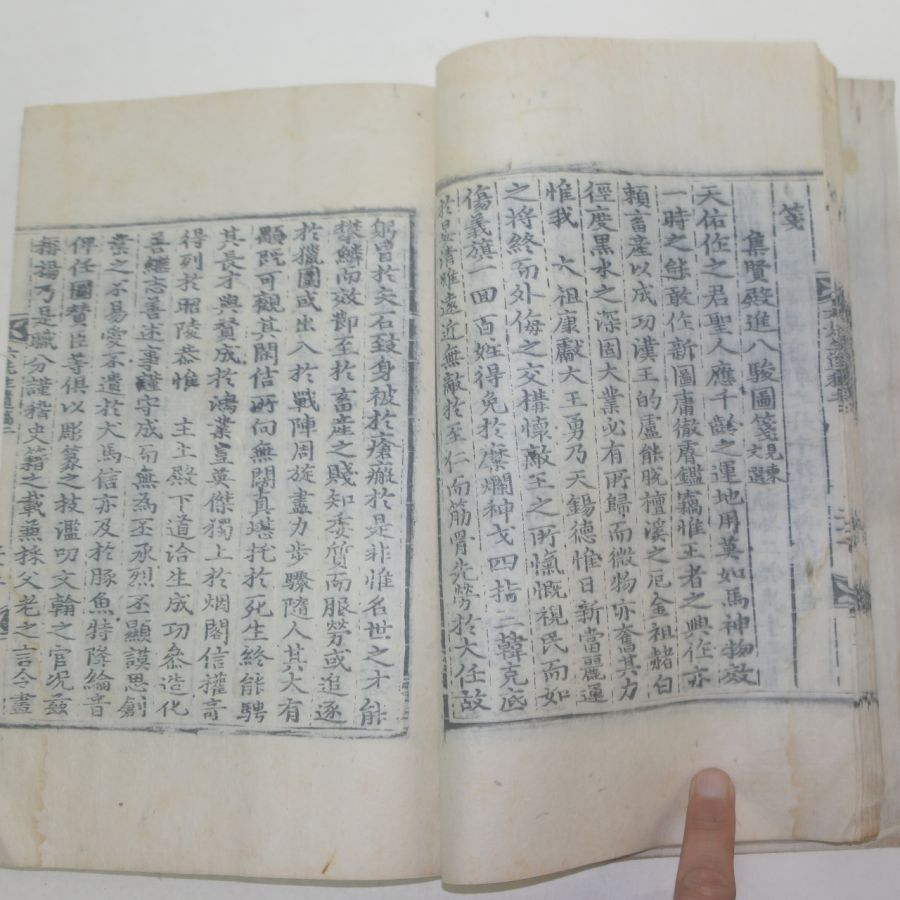 箋
集賢殿進八駿圖箋見東文選
天佑作之君聖人應千齡之運地用莫如馬神物效
一時之能敢作新圖庸徹膚鑑竊惟王者之興作亦
賴畜產以成功漢王的盧能脫檀溪之厄金祖赭白
徑度黑水之深固大業必有所歸而微物亦奮其力
惟我 太祖康獻大王勇乃天錫德惟日新當麗運
之將終而外侮之交構懷敵王之所愾慨視民而如
傷義旗一回百姓得免於糜爛神戈四指三韓克底
於晏清雖遠近無敵於至仁而筋骨先勞於大任故
躬曾於交石致身被於瘡瘢於是非惟名世之才能
攀鱗而效節至於畜產之賤知委質而服勞或追逐
於獵圍或出入於戰陣周旋盡力步驟隨人其大有
顒旣可觀其閑佶所向無闊真堪托於死生終能騁
其長才與贊成於鴻業豈英傑獨上於烟閣信權奇
得列於昭陵恭惟 主上殿下道洽生成功叅造化
善繼志善述事謹守成而無為丕承烈丕顯謨思創
業之不易愛不遺於犬馬信亦及於豚魚特降綸音
俾任圖贊臣等俱以彫篆之技濫叨文翰之官况玆
揄揚乃是職分謹稽史籍之載兼採父老之言今畫